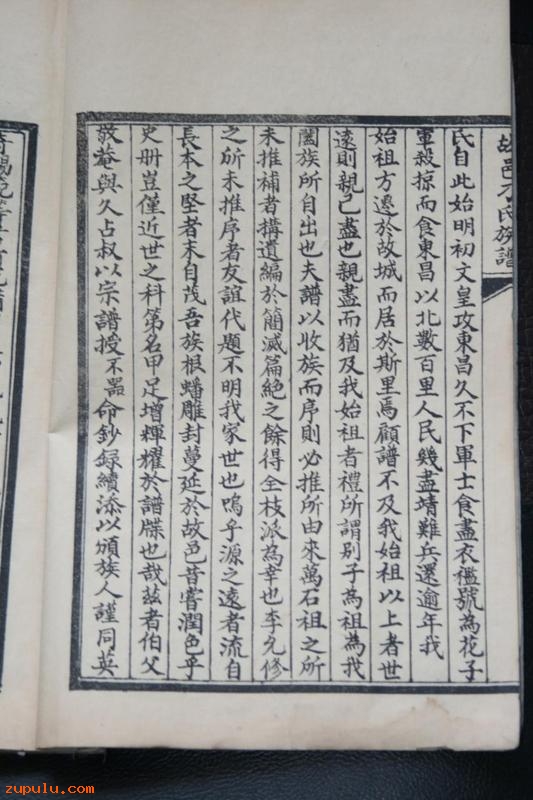 故邑万氏族譜
氏自此始明初文皇攻東昌久不下軍士食盡衣襤號為花子
軍殺掠而食東昌以北數百里人民幾盡靖難兵還逾年我
始祖方遷於故城而居於斯里焉顧譜不及我始祖以上者世
遠則親已盡也親盡而猶及我始祖者禮所謂別子為祖為我
闔族所自出也夫譜以收族而序則必推所由來萬石祖之所
未推補者搆遺編於簡滅篇絕之餘得全枝派為幸也李允修
之所未推序者友誼代題不明我家世也嗚乎源之遠者流自
長本之堅者末自茂吾族根蟠雕封蔓延於故邑昔嘗潤色乎
史册豈僅近世之科第名甲足增輝耀於譜牒也哉茲者伯父
敬菴與久占叔以宗譜授不器命鈔録續添以頒族人謹同英
zupulu.com